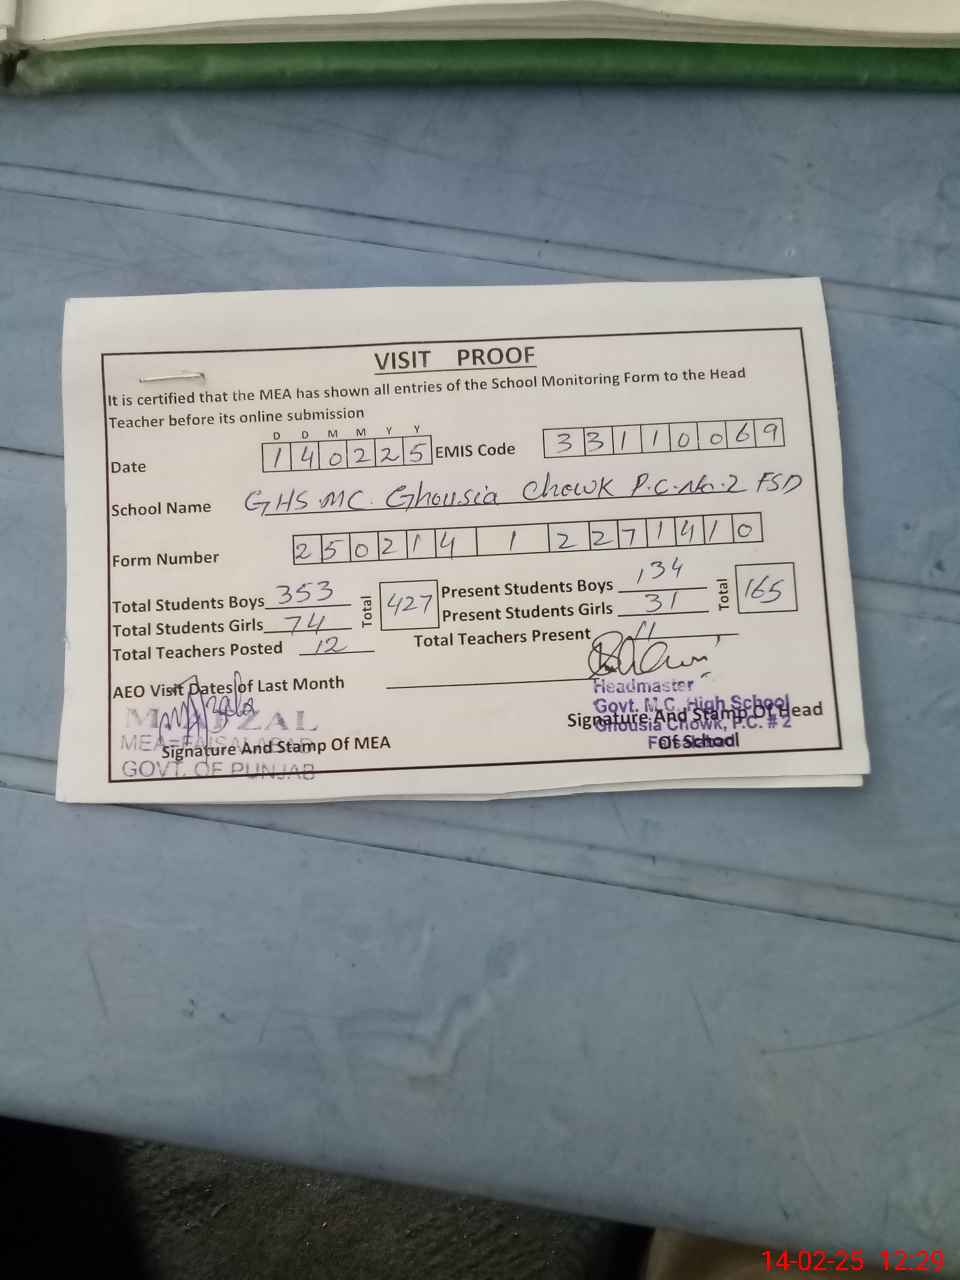 VISIT PROOF
It is certified that the MEA has shown all entries of the School Monitoring Form to the Head
Teacher before its online submission
D D M M Y Y
Date 1 4 0 2 2 5 EMIS Code 3 3 1 1 0 0 6 9
School Name GHS MC. Ghousia Chowk P.C.No.2 FSD
Form Number 2 5 0 2 1 4 1 2 2 7 1 4 1 0
Total Students Boys 353 Total 427 Present Students Boys 134 Total 165
Total Students Girls 74 Present Students Girls 31
Total Teachers Posted 12 Total Teachers Present 11
AEO Visit Dates of Last Month
Headmaster
Govt. M.C. High School
Ghousia Chowk, P.C. # 2
Signature And Stamp Of Head
Of School
Signature And Stamp Of MEA
GOVT. OF PUNJAB
14-02-25 12:29